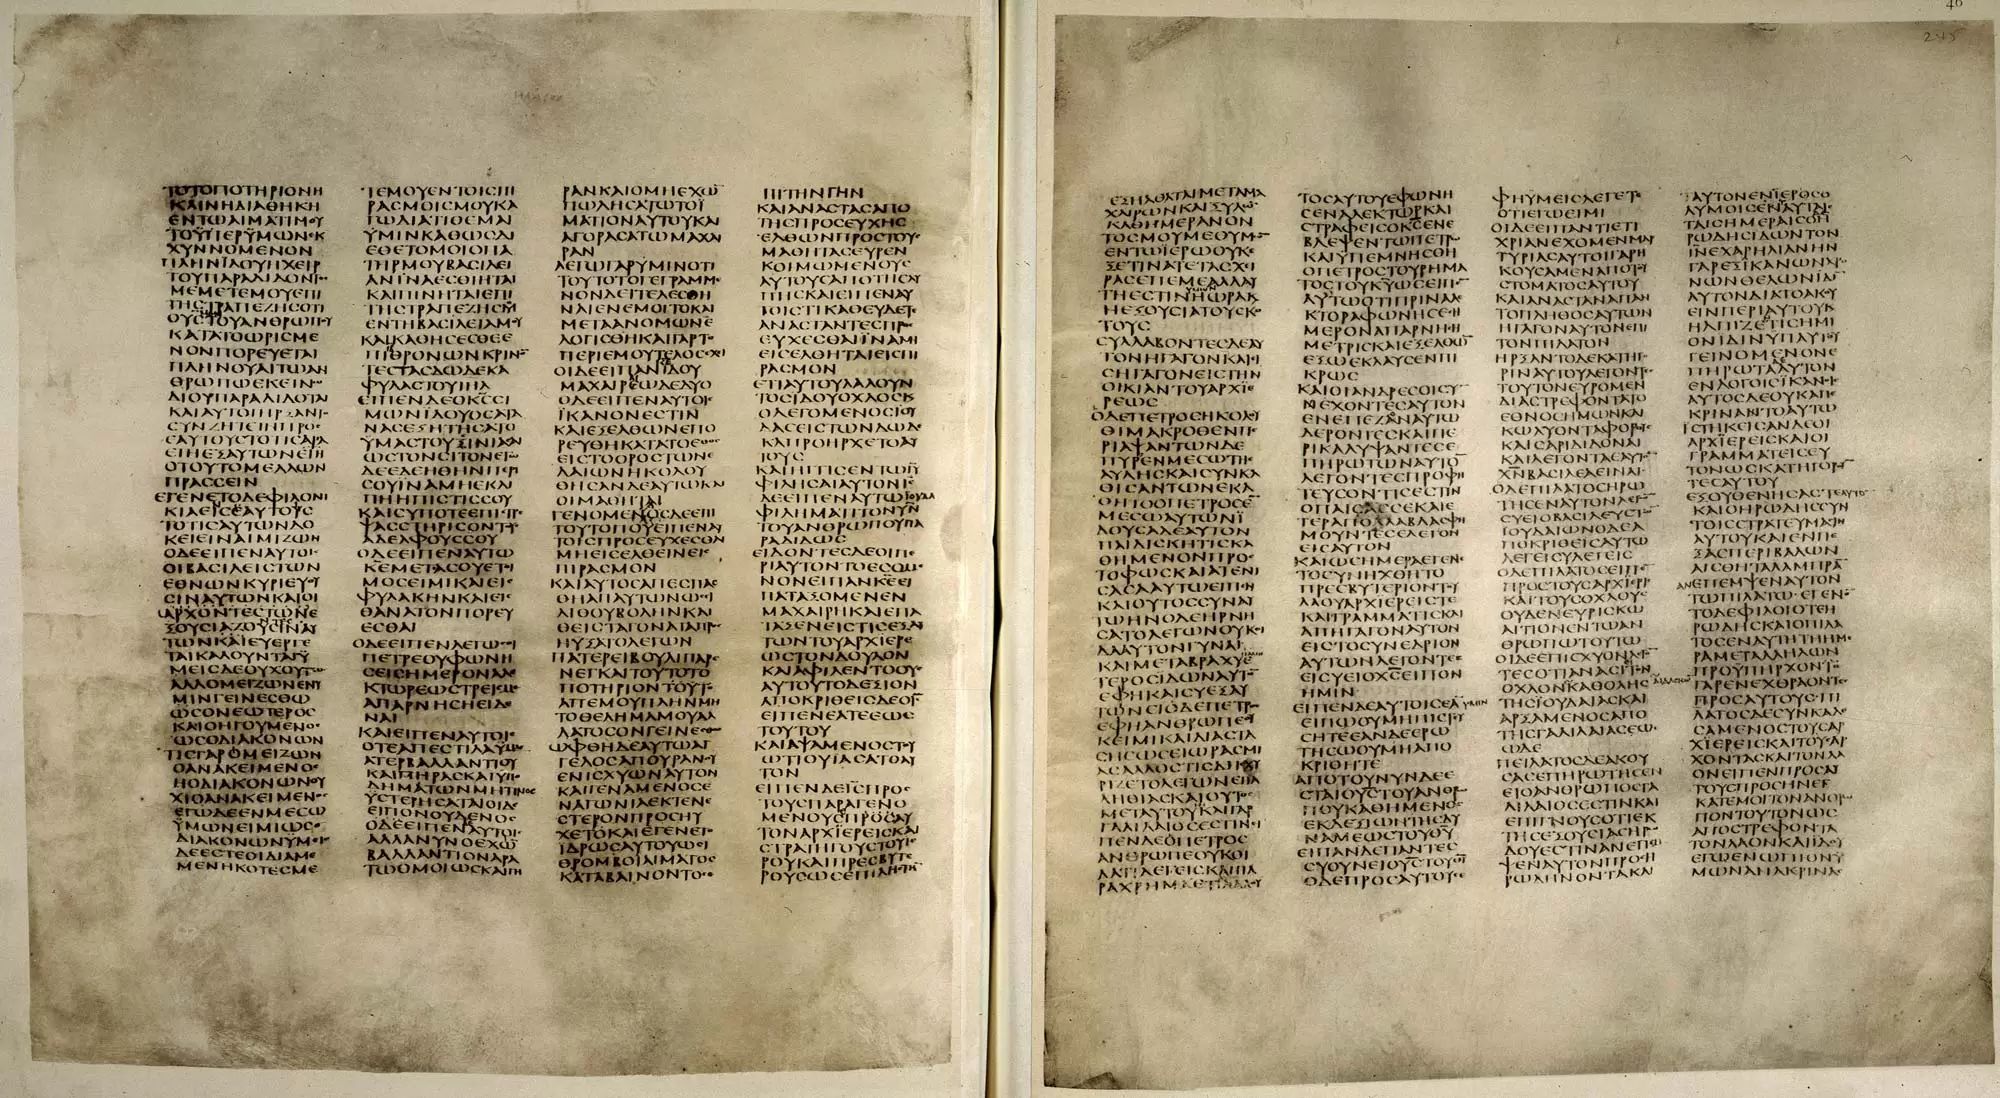 ΤΟΤΟΠΟΤΗΡΙΟΝΗ
ΚΑΙΝΗΔΙΑΘΗΚΗ
ΕΝΤΩΑΙΜΑΤΙΜΟΥ
ΤΟΥΠΕΡΫΜΩΝΕΚ
ΧΥΝΝΟΜΕΝΟΝ
ΠΛΗΝΙΔΟΥΗΧΕΙΡ
ΤΟΥΠΑΡΑΔΙΔΟΝΤΟϹ
ΜΕΜΕΤΕΜΟΥΕΠΙ
ΤΗϹΤΡΑΠΕΖΗϹΟΤΙ
ΟΥϹΤΟΥΑΝΘΡΩΠΟΥ
ΚΑΤΑΤΟΩΡΙϹΜΕ
ΝΟΝΠΟΡΕΥΕΤΑΙ
ΠΛΗΝΟΥΑΙΤΩΑΝ
ΘΡΩΠΩΕΚΕΙΝΩ
ΔΙΟΥΠΑΡΑΔΙΔΟΤΑΙ
ΚΑΙΑΥΤΟΙΗΡΞΑΝΤΟ
ϹΥΝΖΗΤΕΙΝΠΡΟϹ
ΕΑΥΤΟΥϹΤΟΤΙϹΑΡΑ
ΕΙΗΕΞΑΥΤΩΝΕΙΗ
ΟΤΟΥΤΟΜΕΛΛΩΝ
ΠΡΑϹϹΕΙΝ
ΕΓΕΝΕΤΟΔΕΦΙΛΟΝΙ
ΚΙΑΕΙϹΕΑΥΤΟΥϹ
ΤΟΤΙϹΑΥΤΩΝΔΟ
ΚΕΙΕΙΝΑΙΜΙΖΩΝ
ΟΔΕΕΙΠΕΝΑΥΤΟΙϹ
ΟΙΒΑϹΙΛΕΙϹΤΩΝ
ΕΘΝΩΝΚΥΡΙΕΥΟΥ
ϹΙΝΑΥΤΩΝΚΑΙΟΙ
ΑΡΧΟΝΤΕϹΤΩΝΕ
ΞΟΥϹΙΑΖΟΥϹΙΝΑΥ
ΤΩΝΚΑΙΕΥΕΡΓΕ
ΤΑΙΚΑΛΟΥΝΤΑΙΫ
ΜΕΙϹΔΕΟΥΧΟΥΤΩϹ
ΑΛΛΟΜΕΙΖΩΝΕΝΫ
ΜΙΝΓΕΙΝΕϹΘΩ
ΩϹΟΝΕΩΤΕΡΟϹ
ΚΑΙΟΗΓΟΥΜΕΝΟϹ
ΩϹΟΔΙΑΚΟΝΩΝ
ΤΙϹΓΑΡΟΜΕΙΖΩΝ
ΟΑΝΑΚΕΙΜΕΝΟϹ
ΗΟΔΙΑΚΟΝΩΝΟΥ
ΧΙΟΑΝΑΚΕΙΜΕΝΟϹ
ΕΓΩΔΕΕΝΜΕϹΩ
ΫΜΩΝΕΙΜΙΩϹΟ
ΔΙΑΚΟΝΩΝΫΜΙϹ
ΔΕΕϹΤΕΟΙΔΙΑΜΕ
ΜΕΝΗΚΟΤΕϹΜΕ
ΤΕΜΟΥΕΝΤΟΙϹΠΙ
ΡΑϹΜΟΙϹΜΟΥΚΑ
ΓΩΔΙΑΤΙΘΕΜΑΙ
ΫΜΙΝΚΑΘΩϹΔΙ
ΕΘΕΤΟΜΟΙΟΠΑ
ΤΗΡΜΟΥΒΑϹΙΛΕΙ
ΑΝΙΝΑΕϹΘΗΤΑΙ
ΚΑΙΠΙΝΗΤΑΙΕΠΙ
ΤΗϹΤΡΑΠΕΖΗϹΜΟΥ
ΕΝΤΗΒΑϹΙΛΕΙΑΜΟΥ
ΚΑΙΚΑΘΗϹΕϹΘΕΕ
ΠΙΘΡΟΝΩΝΚΡΙΝΟ
ΤΕϹΤΑϹΔΩΔΕΚΑ
ΦΥΛΑϹΤΟΥΙΗΛ
ΕΙΠΕΝΔΕΟΚϹϹΙ
ΜΩΝΪΔΟΥΟϹΑΤΑ
ΝΑϹΕΞΗΤΗϹΑΤΟ
ΫΜΑϹΤΟΥϹΙΝΙΑϹΑΙ
ΩϹΤΟΝϹΙΤΟΝΕΓΩ
ΔΕΕΔΕΗΘΗΝΠΕΡΙ
ϹΟΥΙΝΑΜΗΕΚΛΙ
ΠΗΗΠΙϹΤΙϹϹΟΥ
ΚΑΙϹΥΠΟΤΕΕΠΙϹΤΡΕ
ΨΑϹϹΤΗΡΙϹΟΝΤΟΥϹ
ΑΔΕΛΦΟΥϹϹΟΥ
ΟΔΕΕΙΠΕΝΑΥΤΩ
ΚΕΜΕΤΑϹΟΥΕΤΟΙ
ΜΟϹΕΙΜΙΚΑΙΕΙϹ
ΦΥΛΑΚΗΝΚΑΙΕΙϹ
ΘΑΝΑΤΟΝΠΟΡΕΥ
ΕϹΘΑΙ
ΟΔΕΕΙΠΕΝΛΕΓΩϹΟΙ
ΠΕΤΡΕΟΥΦΩΝΗ
ϹΕΙϹΗΜΕΡΟΝΑΛΕ
ΚΤΩΡΕΩϹΤΡΕΙϹΜΕ
ΑΠΑΡΝΗϹΗΕΙΔΕ
ΝΑΙ
ΚΑΙΕΙΠΕΝΑΥΤΟΙϹ
ΟΤΕΑΠΕϹΤΙΛΑΫΜΑϹ
ΑΤΕΡΒΑΛΛΑΝΤΙΟΥ
ΚΑΙΠΗΡΑϹΚΑΙΫΠΟ
ΔΗΜΑΤΩΝΜΗΤΙΝΟϹ
ΫϹΤΕΡΗϹΑΤΑΙΟΙΔΕ
ΕΙΠΟΝΟΥΔΕΝΟϹ
ΟΔΕΕΙΠΕΝΑΥΤΟΙϹ
ΑΛΛΑΝΥΝΟΕΧΩ
ΒΑΛΛΑΝΤΙΟΝΑΡΑ
ΤΩΟΜΟΙΩϹΚΑΙΠΗ
ΡΑΝΚΑΙΟΜΗΕΧΩ
ΠΩΛΗϹΑΤΩΤΟΪ
ΜΑΤΙΟΝΑΥΤΟΥΚΑΙ
ΑΓΟΡΑϹΑΤΩΜΑΧΑΙ
ΡΑΝ
ΛΕΓΩΓΑΡΫΜΙΝΟΤΙ
ΤΟΥΤΟΤΟΓΕΓΡΑΜΜΕ
ΝΟΝΔΕΙΤΕΛΕϹΘΗ
ΝΑΙΕΝΕΜΟΙΤΟΚΑΙ
ΜΕΤΑΑΝΟΜΩΝΕ
ΛΟΓΙϹΘΗΚΑΙΓΑΡΤΟ
ΠΕΡΙΕΜΟΥΤΕΛΟϹΕΧΙ
ΟΙΔΕΕΙΠΑΝΙΔΟΥ
ΜΑΧΑΙΡΕΩΔΕΔΥΟ
ΟΔΕΕΙΠΕΝΑΥΤΟΙϹ
ΪΚΑΝΟΝΕϹΤΙΝ
ΚΑΙΕΞΕΛΘΩΝΕΠΟ
ΡΕΥΘΗΚΑΤΑΤΟΕΘΟϹ
ΕΙϹΤΟΟΡΟϹΤΩΝΕ
ΛΑΙΩΝΗΚΟΛΟΥ
ΘΗϹΑΝΔΕΑΥΤΩΚΑΙ
ΟΙΜΑΘΗΤΑΙ
ΓΕΝΟΜΕΝΟϹΔΕΕΠΙ
ΤΟΥΤΟΠΟΥΕΙΠΕΝΑΥ
ΤΟΙϹΠΡΟϹΕΥΧΕϹΘΑΙ
ΜΗΕΙϹΕΛΘΕΙΝΕΙϹ
ΠΙΡΑϹΜΟΝ
ΚΑΙΑΥΤΟϹΑΠΕϹΠΑϹ
ΘΗΑΠΑΥΤΩΝΩϹΙ
ΛΙΘΟΥΒΟΛΗΝΚΑΙ
ΘΕΙϹΤΑΓΟΝΑΤΑΠΡΟϹ
ΗΥΞΑΤΟΛΕΓΩΝ
ΠΑΤΕΡΕΙΒΟΥΛΙΠΑΡΕ
ΝΕΓΚΑΙΤΟΥΤΟΤΟ
ΠΟΤΗΡΙΟΝΤΟΥΤΟ
ΑΠΕΜΟΥΠΛΗΝΜΗ
ΤΟΘΕΛΗΜΑΜΟΥΑΛ
ΛΑΤΟϹΟΝΓΕΙΝΕϹΘΩ
ΩΦΘΗΔΕΑΥΤΩΑΓ
ΓΕΛΟϹΑΠΟΥΡΑΝΟΥ
ΕΝΙϹΧΥΩΝΑΥΤΟΝ
ΚΑΙΓΕΝΑΜΕΝΟϹΕ
ΝΑΓΩΝΙΑΕΚΤΕΝΕ
ϹΤΕΡΟΝΠΡΟϹΗΥ
ΧΕΤΟΚΑΙΕΓΕΝΕΤΟ
ΪΔΡΩϹΑΥΤΟΥΩϹΕΙ
ΘΡΟΜΒΟΙΑΙΜΑΤΟϹ
ΚΑΤΑΒΑΙΝΟΝΤΟϹ
ΠΙΤΗΝΓΗΝ
ΚΑΙΑΝΑϹΤΑϹΑΠΟ
ΤΗϹΠΡΟϹΕΥΧΗϹ
ΕΛΘΩΝΠΡΟϹΤΟΥϹ
ΜΑΘΗΤΑϹΕΥΡΕΝ
ΚΟΙΜΩΜΕΝΟΥϹ
ΑΥΤΟΥϹΑΠΟΤΗϹΛΥ
ΠΗϹΚΑΙΕΙΠΕΝΑΥ
ΤΟΙϹΤΙΚΑΘΕΥΔΕΤΕ
ΑΝΑϹΤΑΝΤΕϹΠΡΟϹ
ΕΥΧΕϹΘΑΙΪΝΑΜΙ
ΕΙϹΕΛΘΗΤΑΙΕΙϹΠΙ
ΡΑϹΜΟΝ
ΕΤΙΑΥΤΟΥΛΑΛΟΥΝ
ΤΟϹΙΔΟΥΟΧΛΟϹΚ
ΟΛΕΓΟΜΕΝΟϹΙΟΥ
ΔΑϹΕΙϹΤΩΝΔΩΔΕ
ΚΑΠΡΟΗΡΧΕΤΟΑΥ
ΤΟΥϹ
ΚΑΙΗΓΓΙϹΕΝΤΩΙΥ
ΦΙΛΗϹΑΙΑΥΤΟΝΙϹ
ΔΕΕΙΠΕΝΑΥΤΩΙΟΥΔΑ
ΦΙΛΗΜΑΤΙΤΟΝΥΝ
ΤΟΥΑΝΘΡΩΠΟΥΠΑ
ΡΑΔΙΔΩϹ
ΕΙΔΟΝΤΕϹΔΕΟΙΠΕ
ΡΙΑΥΤΟΝΤΟΕϹΟΜΕ
ΝΟΝΕΙΠΑΝΚΕΕΙ
ΠΑΤΑΞΟΜΕΝΕΝ
ΜΑΧΑΙΡΗΚΑΙΕΠΑ
ΤΑΞΕΝΕΙϹΤΙϹΕΞΑΥ
ΤΩΝΤΟΥΑΡΧΙΕΡΕ
ΩϹΤΟΝΔΟΥΛΟΝ
ΚΑΙΑΦΙΛΕΝΤΟΟΥϹ
ΑΥΤΟΥΤΟΔΕΞΙΟΝ
ΑΠΟΚΡΙΘΕΙϹΔΕΟΙϹ
ΕΙΠΕΝΕΑΤΕΕΩϹ
ΤΟΥΤΟΥ
ΚΑΙΑΨΑΜΕΝΟϹΤΟΥ
ΩΤΙΟΥΙΑϹΑΤΟΑΥ
ΤΟΝ
ΕΙΠΕΝΔΕΙϹΠΡΟϹ
ΤΟΥϹΠΑΡΑΓΕΝΟ
ΜΕΝΟΥϹΠΡΟϹΑΥ
ΤΟΝΑΡΧΪΕΡΕΙϹΚΑΙ
ϹΤΡΑΤΗΓΟΥϹΤΟΥΪΕ
ΡΟΥΚΑΙΠΡΕϹΒΥΤΕ
ΡΟΥϹΩϹΕΠΙΛΗϹΤΗ
ΕΞΗΛΘΑΤΑΙΜΕΤΑΜΑ
ΧΑΙΡΩΝΚΑΙΞΥΛΩ
ΚΑΘΗΜΕΡΑΝΟΝ
ΤΟϹΜΟΥΜΕΘΥΜΩ
ΕΝΤΩΪΕΡΩΟΥΚΕ
ΞΕΤΙΝΑΤΕΤΑϹΧΙ
ΡΑϹΕΠΕΜΕΑΛΛΑΥ
ΤΗΕϹΤΙΝΗΩΡΑΚ
ΗΕΞΟΥϹΙΑΤΟΥϹΚΟ
ΤΟΥϹ
ϹΥΛΛΑΒΟΝΤΕϹΔΕΑΥ
ΤΟΝΗΓΑΓΟΝΚΑΙΕΙ
ϹΗΓΑΓΟΝΕΙϹΤΗΝ
ΟΙΚΙΑΝΤΟΥΑΡΧΪΕ
ΡΕΩϹ
ΟΔΕΠΕΤΡΟϹΗΚΟΛΟΥ
ΘΙΜΑΚΡΟΘΕΝΠΕ
ΡΙΑΨΑΝΤΩΝΔΕ
ΠΥΡΕΝΜΕϹΩΤΗϹ
ΑΥΛΗϹΚΑΙϹΥΝΚΑ
ΘΙϹΑΝΤΩΝΕΚΑ
ΘΗΤΟΟΠΕΤΡΟϹΕ
ΜΕϹΩΑΥΤΩΝΪ
ΔΟΥϹΑΔΕΑΥΤΟΝ
ΠΑΙΔΙϹΚΗΤΙϹΚΑ
ΘΗΜΕΝΟΝΠΡΟϹ
ΤΟΦΩϹΚΑΙΑΤΕΝΙ
ϹΑϹΑΑΥΤΩΕΙΠΕΝ
ΚΑΙΟΥΤΟϹϹΥΝΑΥ
ΤΩΗΝΟΔΕΗΡΝΗ
ϹΑΤΟΛΕΓΩΝΟΥΚΟΙ
ΔΑΑΥΤΟΝΓΥΝΑΙ
ΚΑΙΜΕΤΑΒΡΑΧΥΕ
ΤΕΡΟϹΙΔΩΝΑΥΤΟ
ΕΦΗΚΑΙϹΥΕΞΑΥ
ΤΩΝΕΙΟΔΕΠΕΤΡΟϹ
ΕΦΗΑΝΘΡΩΠΕΟΥ
ΚΕΙΜΙΚΑΙΔΙΑϹΤΑ
ϹΗϹΩϹΕΙΩΡΑϹΜΙ
ΑϹΑΛΛΟϹΤΙϹΔΙΙϹΧΥ
ΡΙΖΕΤΟΛΕΓΩΝΕΠΑ
ΛΗΘΙΑϹΚΑΙΟΥΤΟϹ
ΜΕΤΑΥΤΟΥΚΑΙΓΑΡ
ΓΑΛΙΛΑΙΟϹΕϹΤΙΝΕΙ
ΠΕΝΔΕΟΠΕΤΡΟϹ
ΑΝΘΡΩΠΕΟΥΚΟΙ
ΔΑΤΙΛΕΓΕΙϹΚΑΙΠΑ
ΡΑΧΡΗΜΑΕΤΙΛΑΛΟΥ
ΤΟϹΑΥΤΟΥΕΦΩΝΗ
ϹΕΝΑΛΕΚΤΩΡΚΑΙ
ϹΤΡΑΦΕΙϹΟΚϹΕΝΕ
ΒΛΕΨΕΝΤΩΠΕΤΡΩ
ΚΑΙΫΠΕΜΝΗϹΘΗ
ΟΠΕΤΡΟϹΤΟΥΡΗΜΑ
ΤΟϹΤΟΥΚΥΩϹΕΙΠΕ
ΑΥΤΩΟΤΙΠΡΙΝΑΛΕ
ΚΤΟΡΑΦΩΝΗϹΕϹΗ
ΜΕΡΟΝΑΠΑΡΝΗϹΗ
ΜΕΤΡΙϹΚΑΙΕΞΕΛΘΩ
ΕΞΩΕΚΛΑΥϹΕΝΠΙ
ΚΡΩϹ
ΚΑΙΟΙΑΝΔΡΕϹΟΙϹΥ
ΝΕΧΟΝΤΕϹΑΥΤΟΝ
ΕΝΕΠΕΖΑΝΑΥΤΩ
ΔΕΡΟΝΤΕϹΚΑΙΠΕ
ΡΙΚΑΛΥΨΑΝΤΕϹΕ
ΠΗΡΩΤΩΝΑΥΤΟ
ΛΕΓΟΝΤΕϹΠΡΟΦΗ
ΤΕΥϹΟΝΤΙϹΕϹΤΙΝ
ΟΠΑΙϹΑϹϹΕΚΑΙΕ
ΤΕΡΑΠΟΛΛΑΒΛΑϹΦΗ
ΜΟΥΝΤΕϹΕΛΕΓΟΝ
ΕΙϹΑΥΤΟΝ
ΚΑΙΩϹΗΜΕΡΑΕΓΕΝΕ
ΤΟϹΥΝΗΧΘΗΤΟ
ΠΡΕϹΒΥΤΕΡΙΟΝΤΟΥ
ΛΑΟΥΑΡΧΙΕΡΕΙϹΤΕ
ΚΑΙΓΡΑΜΜΑΤΙϹΚΑΙ
ΑΠΗΓΑΓΟΝΑΥΤΟΝ
ΕΙϹΤΟϹΥΝΕΔΡΙΟΝ
ΑΥΤΩΝΛΕΓΟΝΤΕϹ
ΕΙϹΥΕΙΟΧϹΕΙΠΟΝ
ΗΜΙΝ
ΕΙΠΕΝΔΕΑΥΤΟΙϹΕΑΫΜΙΝ
ΕΙΠΩΟΥΜΗΠΙϹΤΕΥ
ϹΗΤΕΕΑΝΔΕΕΡΩ
ΤΗϹΩΟΥΜΗΑΠΟ
ΚΡΙΘΗΤΕ
ΑΠΟΤΟΥΝΥΝΔΕΕ
ϹΤΑΙΟΥϹΤΟΥΑΝΘΡΩ
ΠΟΥΚΑΘΗΜΕΝΟϹ
ΕΚΔΕΞΙΩΝΤΗϹΔΥ
ΝΑΜΕΩϹΤΟΥΘΥ
ΕΙΠΑΝΔΕΠΑΝΤΕϹ
ϹΥΟΥΝΕΙΟΥϹΤΟΥΘΥ
ΟΔΕΠΡΟϹΑΥΤΟΥϹ
ΦΗΫΜΕΙϹΛΕΓΕΤΕ
ΟΤΙΕΓΩΕΙΜΙ
ΟΙΔΕΕΙΠΑΝΤΙΕΤΙ
ΧΡΙΑΝΕΧΟΜΕΝΜΑΡ
ΤΥΡΙΑϹΑΥΤΟΙΓΑΡΗ
ΚΟΥϹΑΜΕΝΑΠΟΤΟΥ
ϹΤΟΜΑΤΟϹΑΥΤΟΥ
ΚΑΙΑΝΑϹΤΑΝΑΠΑΝ
ΤΟΠΛΗΘΟϹΑΥΤΩΝ
ΗΓΑΓΟΝΑΥΤΟΝΕΠΙ
ΤΟΝΠΙΛΑΤΟΝ
ΗΡΞΑΝΤΟΔΕΚΑΤΗΓΟ
ΡΙΝΑΥΤΟΥΛΕΓΟΝΤΕϹ
ΤΟΥΤΟΝΕΥΡΟΜΕΝ
ΔΙΑϹΤΡΕΦΟΝΤΑΤΟ
ΕΘΝΟϹΗΜΩΝΚΑΙ
ΚΩΛΥΟΝΤΑΦΟΡΟΥϹ
ΚΑΙϹΑΡΙΔΙΔΟΝΑΙ
ΚΑΙΛΕΓΟΝΤΑΕΑΥΤΟ
ΧΝΒΑϹΙΛΕΑΕΙΝΑΙ
ΟΔΕΠΙΛΑΤΟϹΗΡΩ
ΤΗϹΕΝΑΥΤΟΝΛΕΓΩ
ϹΥΕΙΟΒΑϹΙΛΕΥϹΤΩ
ΙΟΥΔΑΙΩΝΟΔΕΑ
ΠΟΚΡΙΘΕΙϹΑΥΤΩ
ΛΕΓΕΙϹΥΛΕΓΕΙϹ
ΟΔΕΠΙΛΑΤΟϹΕΙΠΕ
ΠΡΟϹΤΟΥϹΑΡΧΙΕΡΙϹ
ΚΑΙΤΟΥϹΟΧΛΟΥϹ
ΟΥΔΕΝΕΥΡΙϹΚΩ
ΑΙΤΙΟΝΕΝΤΩΑΝ
ΘΡΩΠΩΤΟΥΤΩ
ΟΙΔΕΕΠΙϹΧΥΟΝΛΕΓΟ
ΤΕϹΟΤΙΑΝΑϹΙΕΙΤΟΝ
ΟΧΛΟΝΚΑΘΟΛΗϹ
ΤΗϹΪΟΥΔΑΙΑϹΚΑΙ
ΑΡΞΑΜΕΝΟϹΑΠΟ
ΤΗϹΓΑΛΙΛΑΙΑϹΕΩϹ
ΩΔΕ
ΠΕΙΛΑΤΟϹΔΕΑΚΟΥ
ϹΑϹΕΠΗΡΩΤΗϹΕΝ
ΕΙΟΑΝΘΡΩΠΟϹΓΑ
ΛΙΛΑΙΟϹΕϹΤΙΝΚΑΙ
ΕΠΙΓΝΟΥϹΟΤΙΕΚ
ΤΗϹΕΞΟΥϹΙΑϹΗΡΩ
ΔΟΥΕϹΤΙΝΑΝΕΠΕ
ΨΕΝΑΥΤΟΝΠΡΟϹΗ
ΡΩΔΗΝΟΝΤΑΚΑΙ
ΑΥΤΟΝΕΝΪΕΡΟϹΟ
ΛΥΜΟΙϹΕΝΑΥΤΑΙϹ
ΤΑΙϹΗΜΕΡΑΙϹΟΗ
ΡΩΔΗϹΙΔΩΝΤΟΝ
ΙΝΕΧΑΡΗΛΙΑΝΗΝ
ΓΑΡΕΞΙΚΑΝΩΝΧΡΟ
ΝΩΝΘΕΛΩΝΙΔΙ
ΑΥΤΟΝΔΙΑΤΟΑΚΟΥ
ΕΙΝΠΕΡΙΑΥΤΟΥΚ
ΗΛΠΙΖΕΤΙϹΗΜΙ
ΟΝΙΔΙΝΥΠΑΥΤΟΥ
ΓΕΙΝΟΜΕΝΟΝΕ
ΠΗΡΩΤΑΔΕΑΥΤΟΝ
ΕΝΛΟΓΟΙϹΙΚΑΝΟΙϹ
ΑΥΤΟϹΔΕΟΥΚΑΠΕ
ΚΡΙΝΑΝΤΟΑΥΤΩ
ΙϹΤΗΚΕΙϹΑΝΔΕΟΙ
ΑΡΧΪΕΡΕΙϹΚΑΙΟΙ
ΓΡΑΜΜΑΤΕΙϹΕΥ
ΤΟΝΩϹΚΑΤΗΓΟΡΟΥ
ΤΕϹΑΥΤΟΥ
ΕΞΟΥΘΕΝΗϹΑϹΔΕΑΥΤΟ
ΚΑΙΟΗΡΩΔΗϹϹΥΝ
ΤΟΙϹϹΤΡΑΤΕΥΜΑϹΙ
ΑΥΤΟΥΚΑΙΕΝΠΕ
ΞΑϹΠΕΡΙΒΑΛΩΝ
ΑΙϹΘΗΤΑΛΑΜΠΡΑ
ΑΝΕΠΕΜΨΕΝΑΥΤΟΝ
ΤΩΠΙΛΑΤΩΕΓΕΝΟ
ΤΟΔΕΦΙΛΟΙΟΤΕΗ
ΡΩΔΗϹΚΑΙΟΠΙΛΑ
ΤΟϹΕΝΑΥΤΗΤΗΗΜΕ
ΡΑΜΕΤΑΛΛΗΛΩΝ
ΠΡΟΥΠΗΡΧΟΝΤΟ
ΓΑΡΕΝΕΧΘΡΑΟΝΤΕϹ
ΠΡΟϹΑΥΤΟΥϹΠΙ
ΛΑΤΟϹΔΕϹΥΝΚΑΛΕ
ϹΑΜΕΝΟϹΤΟΥϹΑΡ
ΧΪΕΡΕΙϹΚΑΙΤΟΥϹΑΡ
ΧΟΝΤΑϹΚΑΙΤΟΝΛΑ
ΟΝΕΙΠΕΝΠΡΟϹΑΥ
ΤΟΥϹΠΡΟϹΗΝΕΓ
ΚΑΤΕΜΟΙΤΟΝΑΝΟΝ
ΤΟΥΤΟΝΩϹ
ΑΠΟϹΤΡΕΦΟΝΤΑ
ΤΟΝΛΑΟΝΚΑΙΙΔΟΥ
ΕΓΩΕΝΩΠΙΟΝΫ
ΜΩΝΑΝΑΚΡΙΝΑϹ
46
245